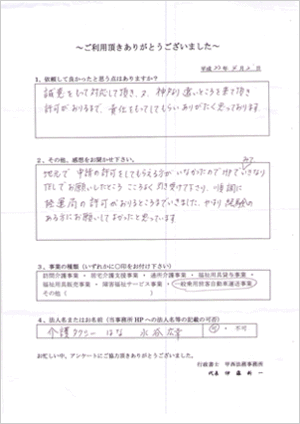 ～ご利用頂きありがとうございました～
平成22年
1、依頼して良かったと思う点はありますか？
誠意をもって対応して頂き、又、神戸より遠いところまで頂き
許可がおりるまで、責任をもってしてもらいありがたく思っております。
2、その他、感想をお聞かせ下さい。
地元で申請の許可をしてもらえる方がいなかったのでHPでいきなり
TELでお願いしたところこころよく引き受け下さり、順調に
陸運局の許可がおりるところまでいきました。やはり経験の
ある方にお願いしてよかったと思っています。
3、事業の種類（いずれかに〇印をお付け下さい）
訪問介護事業・居宅介護支援事業・通所介護事業・福祉用具貸与事業・
福祉用具販売事業・障害福祉サービス事業・一般乗用旅客自動車運送事業
その他（　　）
4、法人名またはお名前（当事務所HPへの法人名等の記載の可否）
介護タクシー はな
可・不可
お忙しい中、アンケートにご協力頂きありがとうございました。
行政書士 甲西法務事務所
代表 伊藤